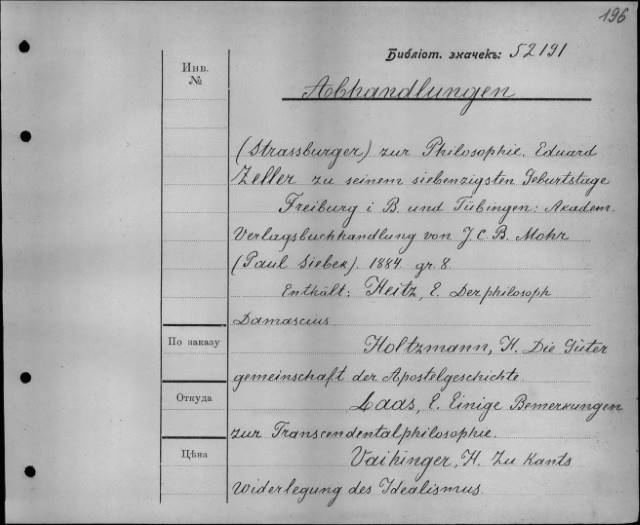 196
Библіот. значекъ: 52191
Инв.
№
Abhandlungen
(Strassburger) zur Philosophie. Eduard
Zeller zu seinem siebenzigsten Geburtstage
Freiburg i B. und Tübingen: Akadem.
Verlagsbuchhandlung von J. C. B. Mohr
(Paul Siebek). 1884. gr. 8.
Enthält: Heitz, E. Der philosoph
Damascius
По заказу
Holtzmann, H. Die Güter
gemeinschaft der Apostelgeschichte
Откуда
Laas, E. Einige Bemerkungen
zur Transcendentalphilosophie.
Цѣна
Vaihinger, H. Zu Kants
Widerlegung des Idealismus.